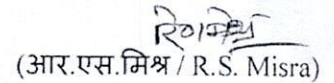 (आर.एस.मिश्र / R.S. Misra)